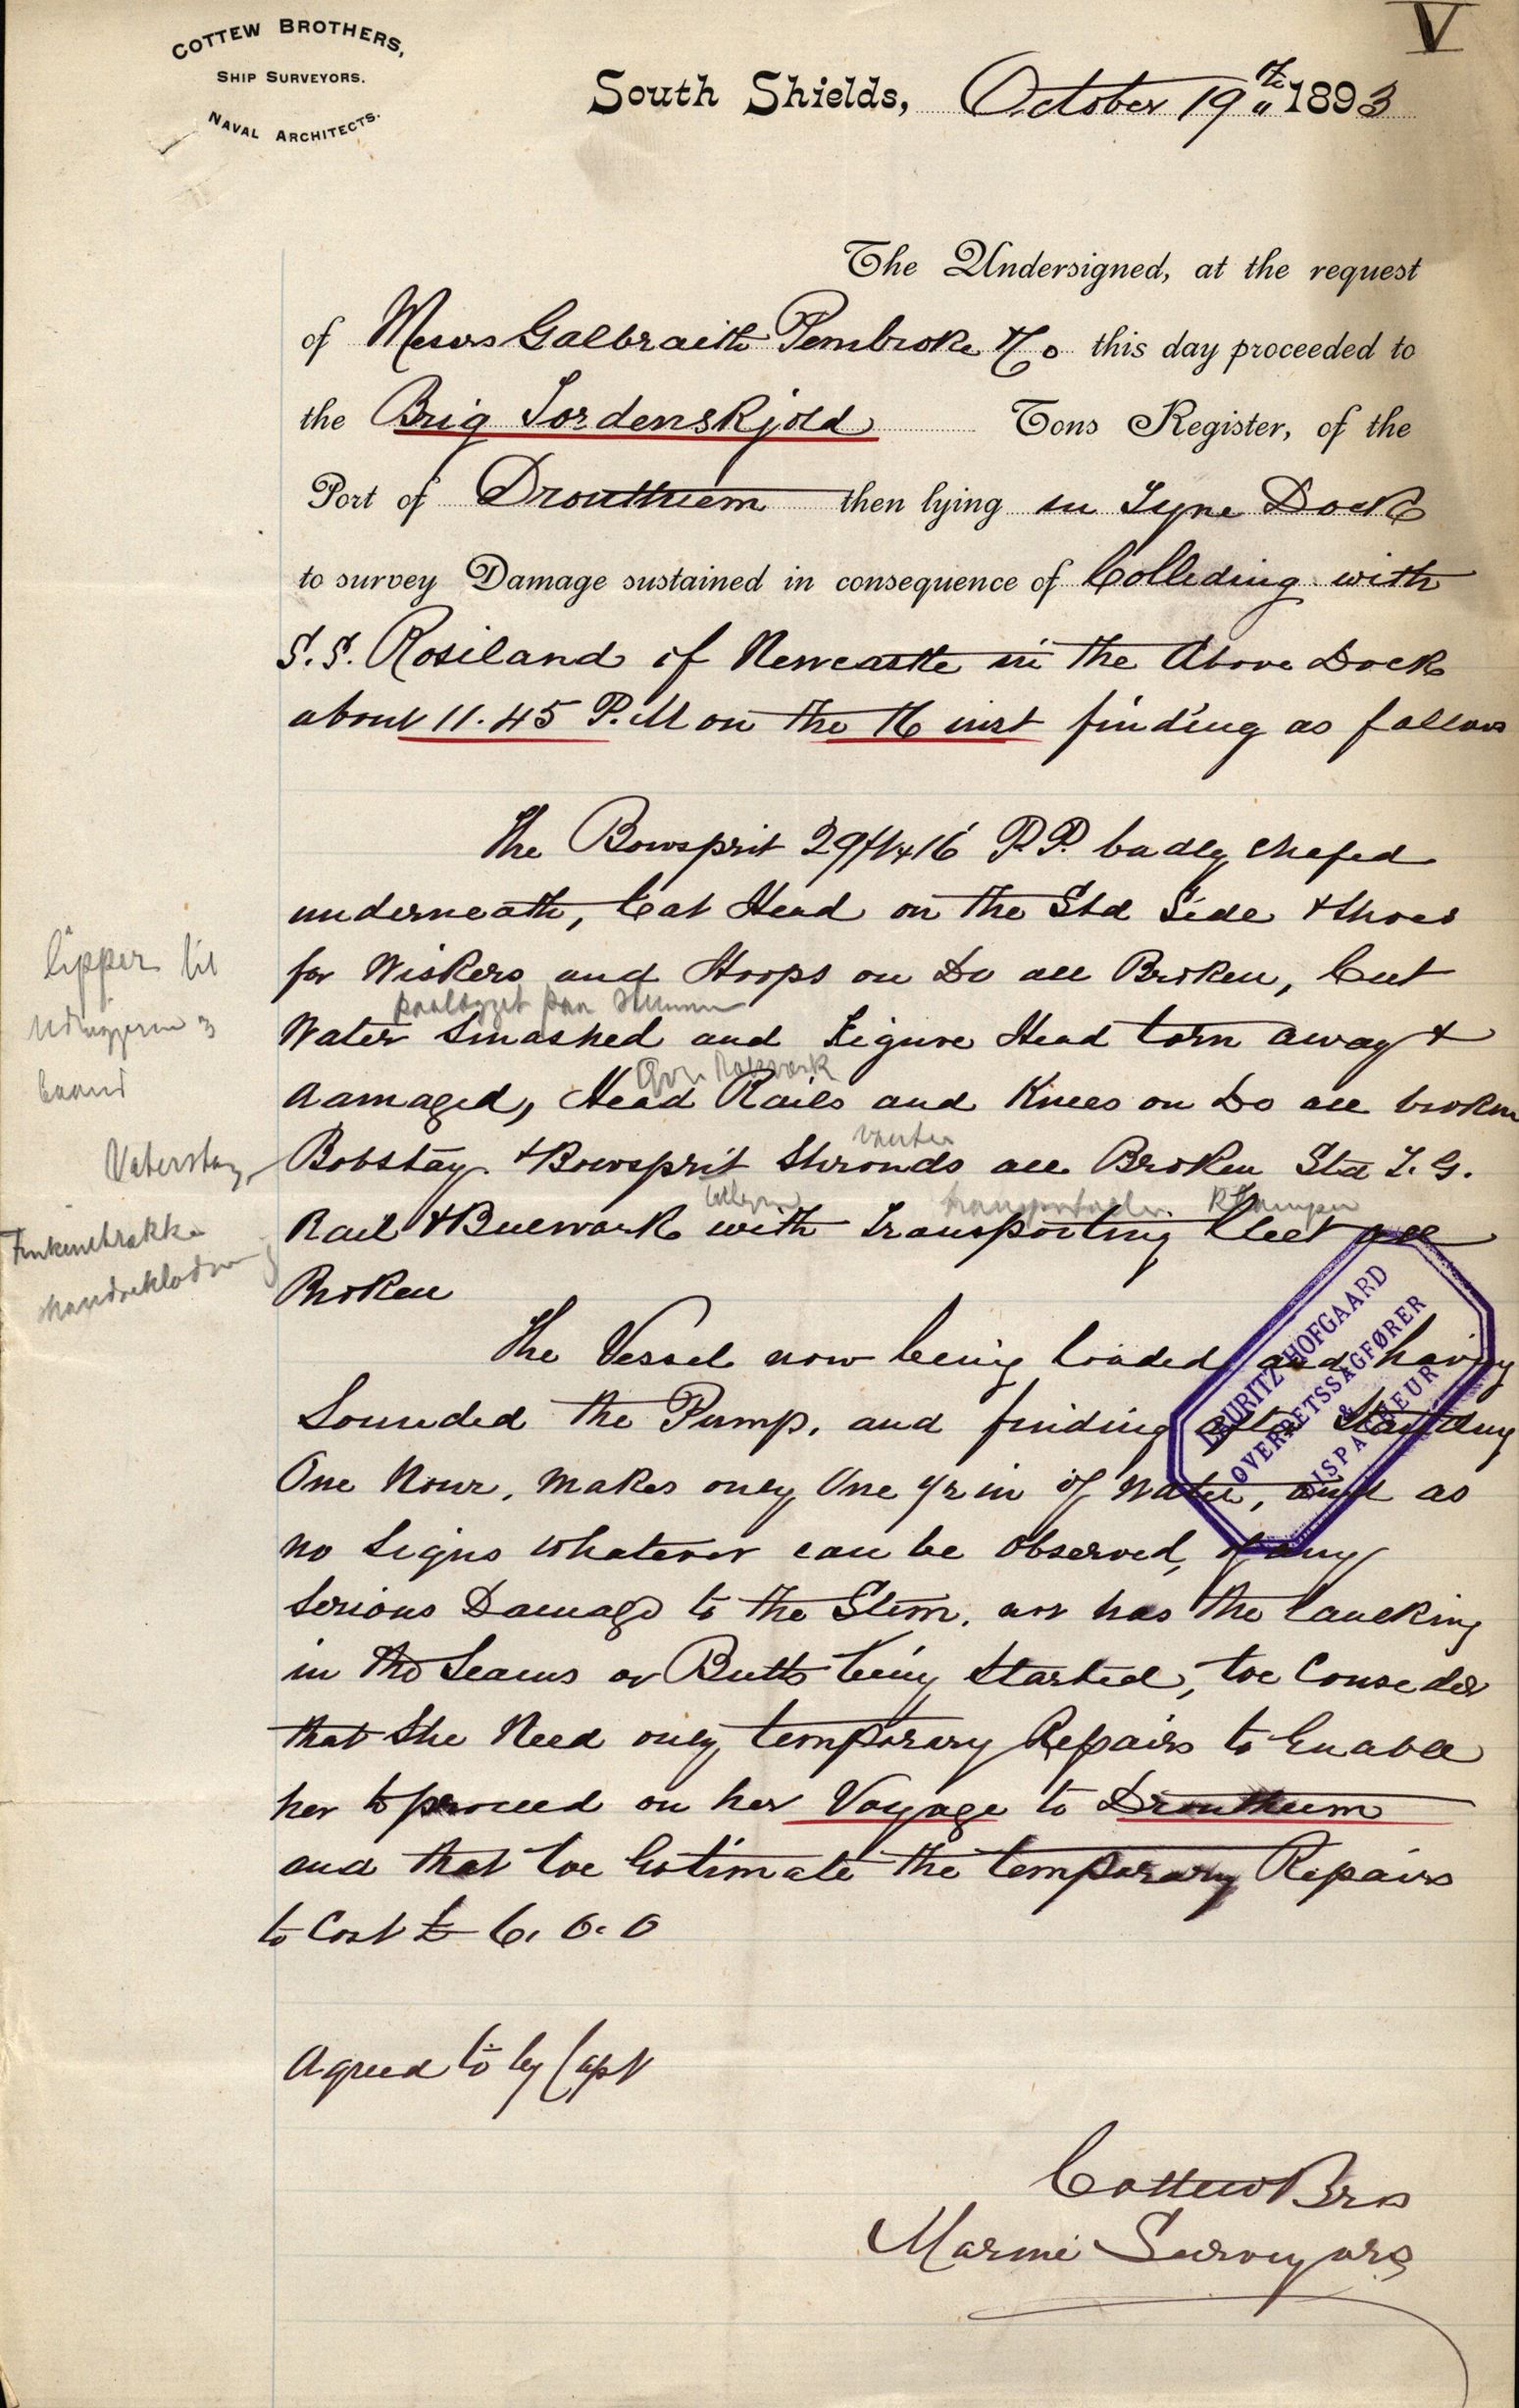 V
COTTEW BROTHERS,
SHIP SURVEYORS.
NAVAL ARCHITECTS.
South Shields, October 19th 1893
The Undersigned, at the request
of Messrs Galbraith Pembroke & Co this day proceeded to
the Brig Tordenskjold Tons Register, of the
Port of Drontheim then lying in Tyne Dock
to survey Damage sustained in consequence of Colleding with
S.S. Rosiland of Newcastle in the Above Dock
about 11.45 P.M on the 16 inst finding as follows
The Bowsprit 29ft x 16 P.P. badly chafed
underneath, Cat Head on the Std Side & Shoes
for Wiskers and Hoops on Do all Broken, Cut
lipper til
paalagget paa
Water Smashed and Figure Head torn away &
baand
damaged, Head Rails and Knees on Do all broken
vanter
Vaterstag
Bobstay & Bowsprit Shrouds all Broken Std T.G.
Rail & Bulwark with Transporting Cleet all
Broken
The Vessel now being loaded and having
Sounded the Pump, and finding after Standing
One Hour, makes only One 1/2 in of Water, and as
no Signs whatever can be observed, of any
Serious Damage to the Stem, nor has the Caulking
in the Seams or Butts being Started, we Consider
that She Need only temporary Repairs to Enable
her to proceed on her Voyage to Drontheim
and that we Estimate the temporary Repairs
to Cost £ 6. 0. 0
LAURITZ HOFGAARD
OVERRETSSAGFØRER
&
DISPACHEUR
Agreed to by Capt
Cottew Bros
Marine Surveyors